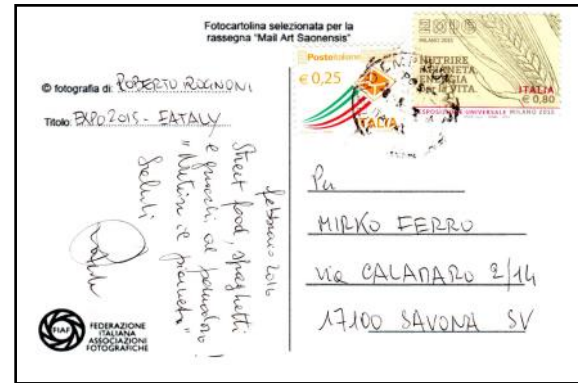 Fotocartolina selezionata per la
rassegna "Mail Art Saonensis"
© fotografia di: ROBERTO ROGNONI
Titolo: EXPO 2015 - EATALY
febbraio 2016
Street food, spaghetti
e gnocchi al pomodoro!
"Nutrire il pianeta"
Saluti
FIAF
FEDERAZIONE
ITALIANA
ASSOCIAZIONI
FOTOGRAFICHE
Posteitaliane
€ 0,25
ITALIA
MILANO 2015
NUTRIRE
IL PIANETA
ENERGIA
per la VITA
ITALIA
€ 0,80
ESPOSIZIONE UNIVERSALE MILANO 2015
Per
MIRKO FERRO
via CALAMARO 2/14
17100 SAVONA SV